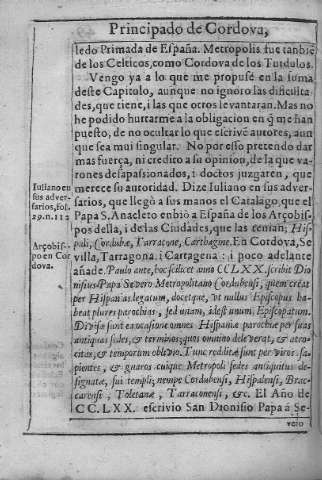 Principado de Cordova,
ledo Primada de España. Metropolis fue tanbiẽ
de los Celticos, como Cordova de los Turdulos.
Vengo ya a lo que me propuse en la suma
deste Capitulo, aunque no ignoro las dificulta
des, que tiene, i las que otros levantaran. Mas no
he podido hurtarme a la obligacion en q̃ me han
puesto, de no ocultar lo que escrivẽ autores, aun
que sea mui singular. No por esto pretendo dar
mas fuerça, ni credito a su opinion, de la que va-
rones desapassionados, i doctos juzgaren, que
merece su autoridad. Dize Iuliano en sus adver-
sarios, que llegò a sus manos el Catalago, que el
Papa S. Anacleto enbiò a España de los Arçobis-
pos della, i de las Ciudades, que las tenian, His-
pali, Cordubæ, Tarracone, Carthagine. En Cordova, Se
villa, Tarragona, i Cartagena: i poco adelante
añade. Paulo ante, hoc scilicet anno CCLXX. scribit Dio
nisius Papa Severo Metropolitano Cordubensi, quem creat
per Hispanias legatum, docetque, ut nullus Episcopus ha-
beat plures parochias, sed unam, id est unum Episcopatum.
Divisæ sunt ea ocasione omnes Hispaniæ parochiæ per suas
antiquas sedes, & terminos; quos omnino deleverat, & atro-
citas, & temporum oblivio. Tunc redditæ sunt per viros sa-
pientes, & gnaros cuique Metropoli sedes antiquitus de-
signatæ, sui templi; nempe Cordubensi, Hispalensi, Brac-
carensi, Toletanæ, Tarraconensi, &c. El Año de
CC.LXX. escrivio San Dionisio Papa á Se-
vero
Iuliano en
sus adver-
sarios, fol.
29. n. 112
Arçobis-
po en Cor
dova.